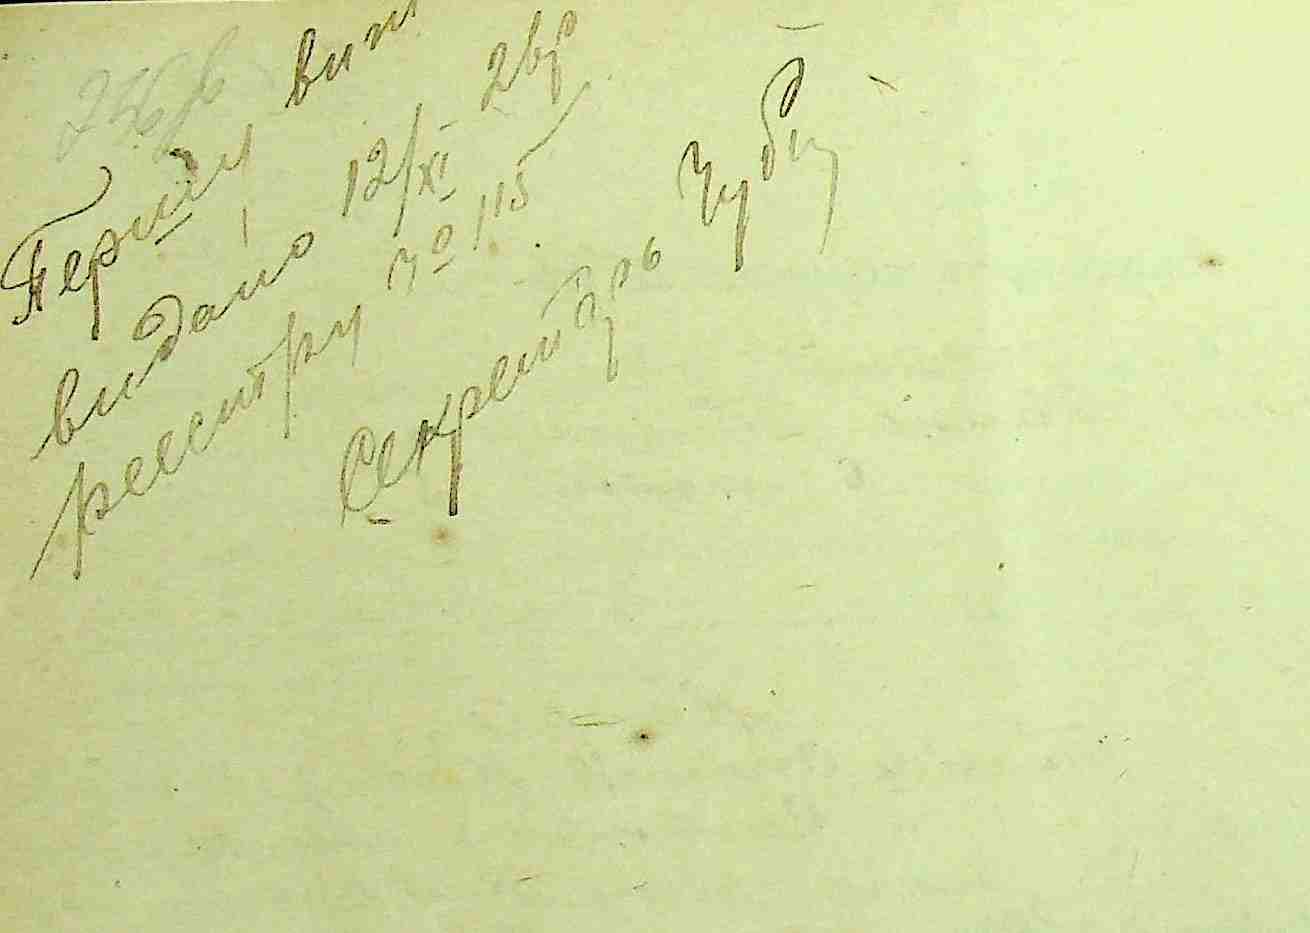 Перший вип
видано 12/XI 2вр
реєстру № 115
Секретарь